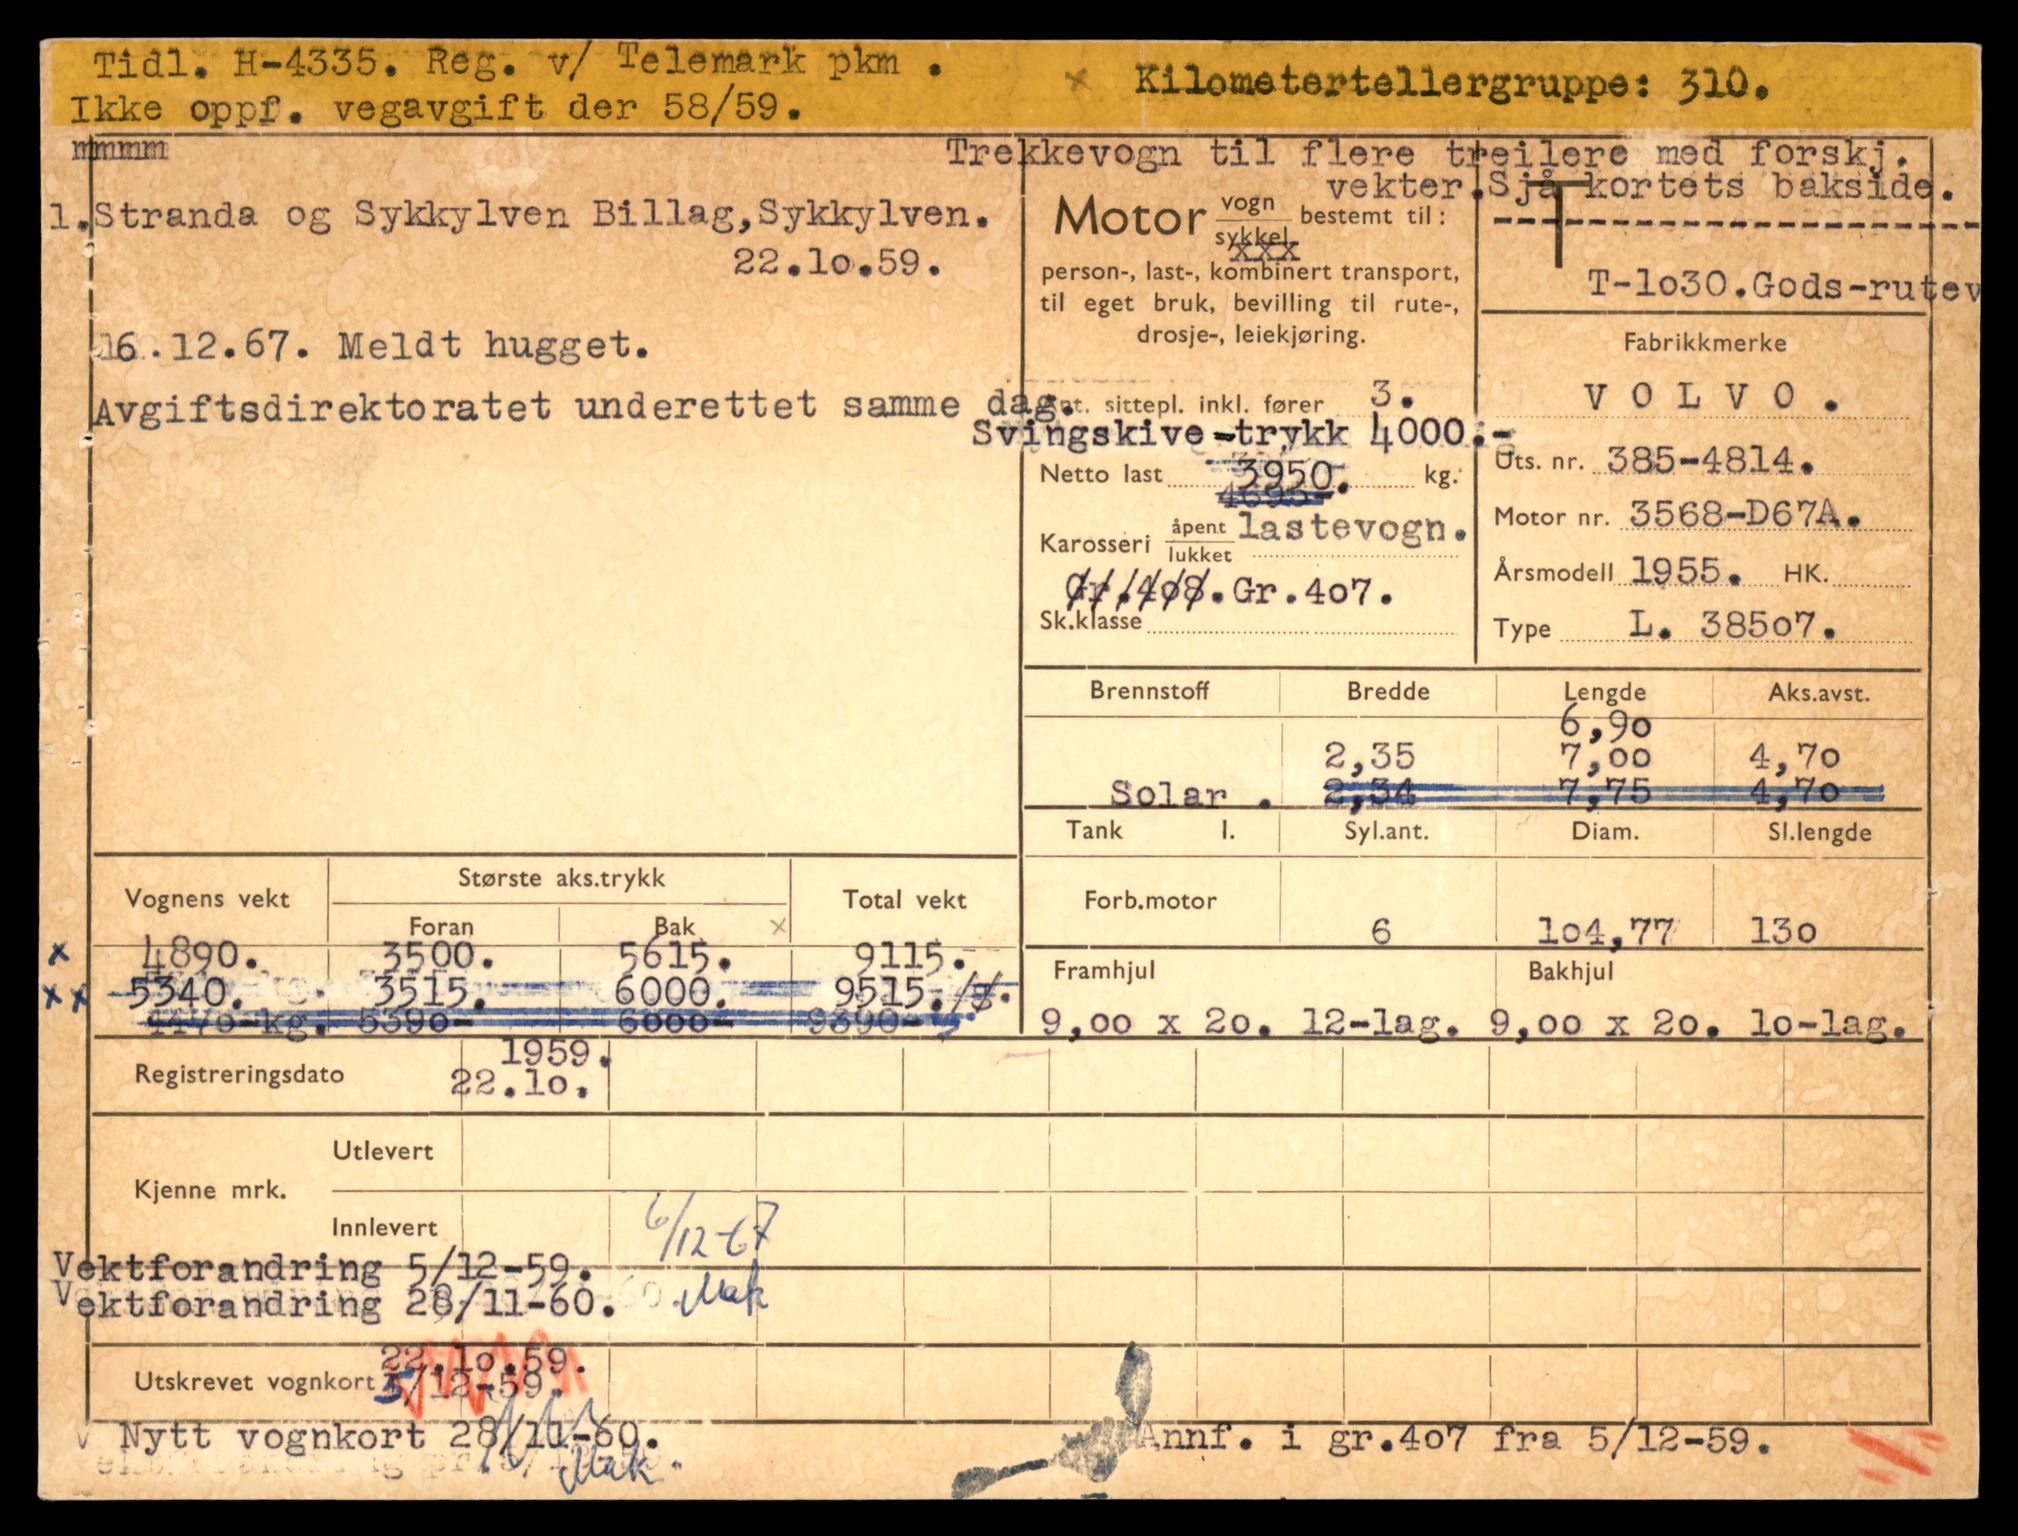 Tidl. H-4335. Reg. v/ Telemark pkm .
Ikke oppf. vegavgift der 58/59.
x Kilometertellergruppe: 310.
mmmm
Trekkevogn til flere treilere med forskj.
vekter. Sjå kortets bakside.
1. Stranda og Sykkylven Billag, Sykkylven.
22.1o.59.
16.12.67. Meldt hugget.
Avgiftsdirektoratet underettet samme dag.
Motor vogn bestemt til:
sykkel
xxx
person-, last-, kombinert transport,
til eget bruk, bevilling til rute-,
drosje-, leiekjøring.
T-1o30. Gods-rutev
Ant. sittepl. inkl. fører 3.
Svingskive-trykk 4000.-
Netto last 3950. kg.
4695-
Karosseri åpent lastevogn.
lukket
Gr.4o8. Gr.4o7.
Sk.klasse
Fabrikkmerke
VOLVO.
Uts. nr. 385-4814.
Motor nr. 3568-D67A.
Årsmodell 1955. HK.
Type L. 385o7.
Brennstoff Bredde Lengde Aks.avst.
6,9o
2,35 7,oo 4,7o
Solar . 2,34 7,75 4,7o
Tank l. Syl.ant. Diam. Sl.lengde
Forb.motor 6 1o4,77 13o
Framhjul Bakhjul
9,oo x 2o. 12-lag. 9,oo x 2o. 1o-lag.
Vognens vekt Største aks.trykk Total vekt
Foran Bak x
x 4890. 3500. 5615. 9115.-
xx 5340. 3515. 6000. 9515.
447o kg. 539o- 6ooo- 939o-
Registreringsdato 1959.
22.1o.
Kjenne mrk. Utlevert
Innlevert 6/12-67
Vektforandring 5/12-59.
Vektforandring 28/11-60. Mak
Utskrevet vognkort 22.1o.59.
5/12-59.
Nytt vognkort 28/11-60.
Mak
Annf. i gr.4o7 fra 5/12-59.